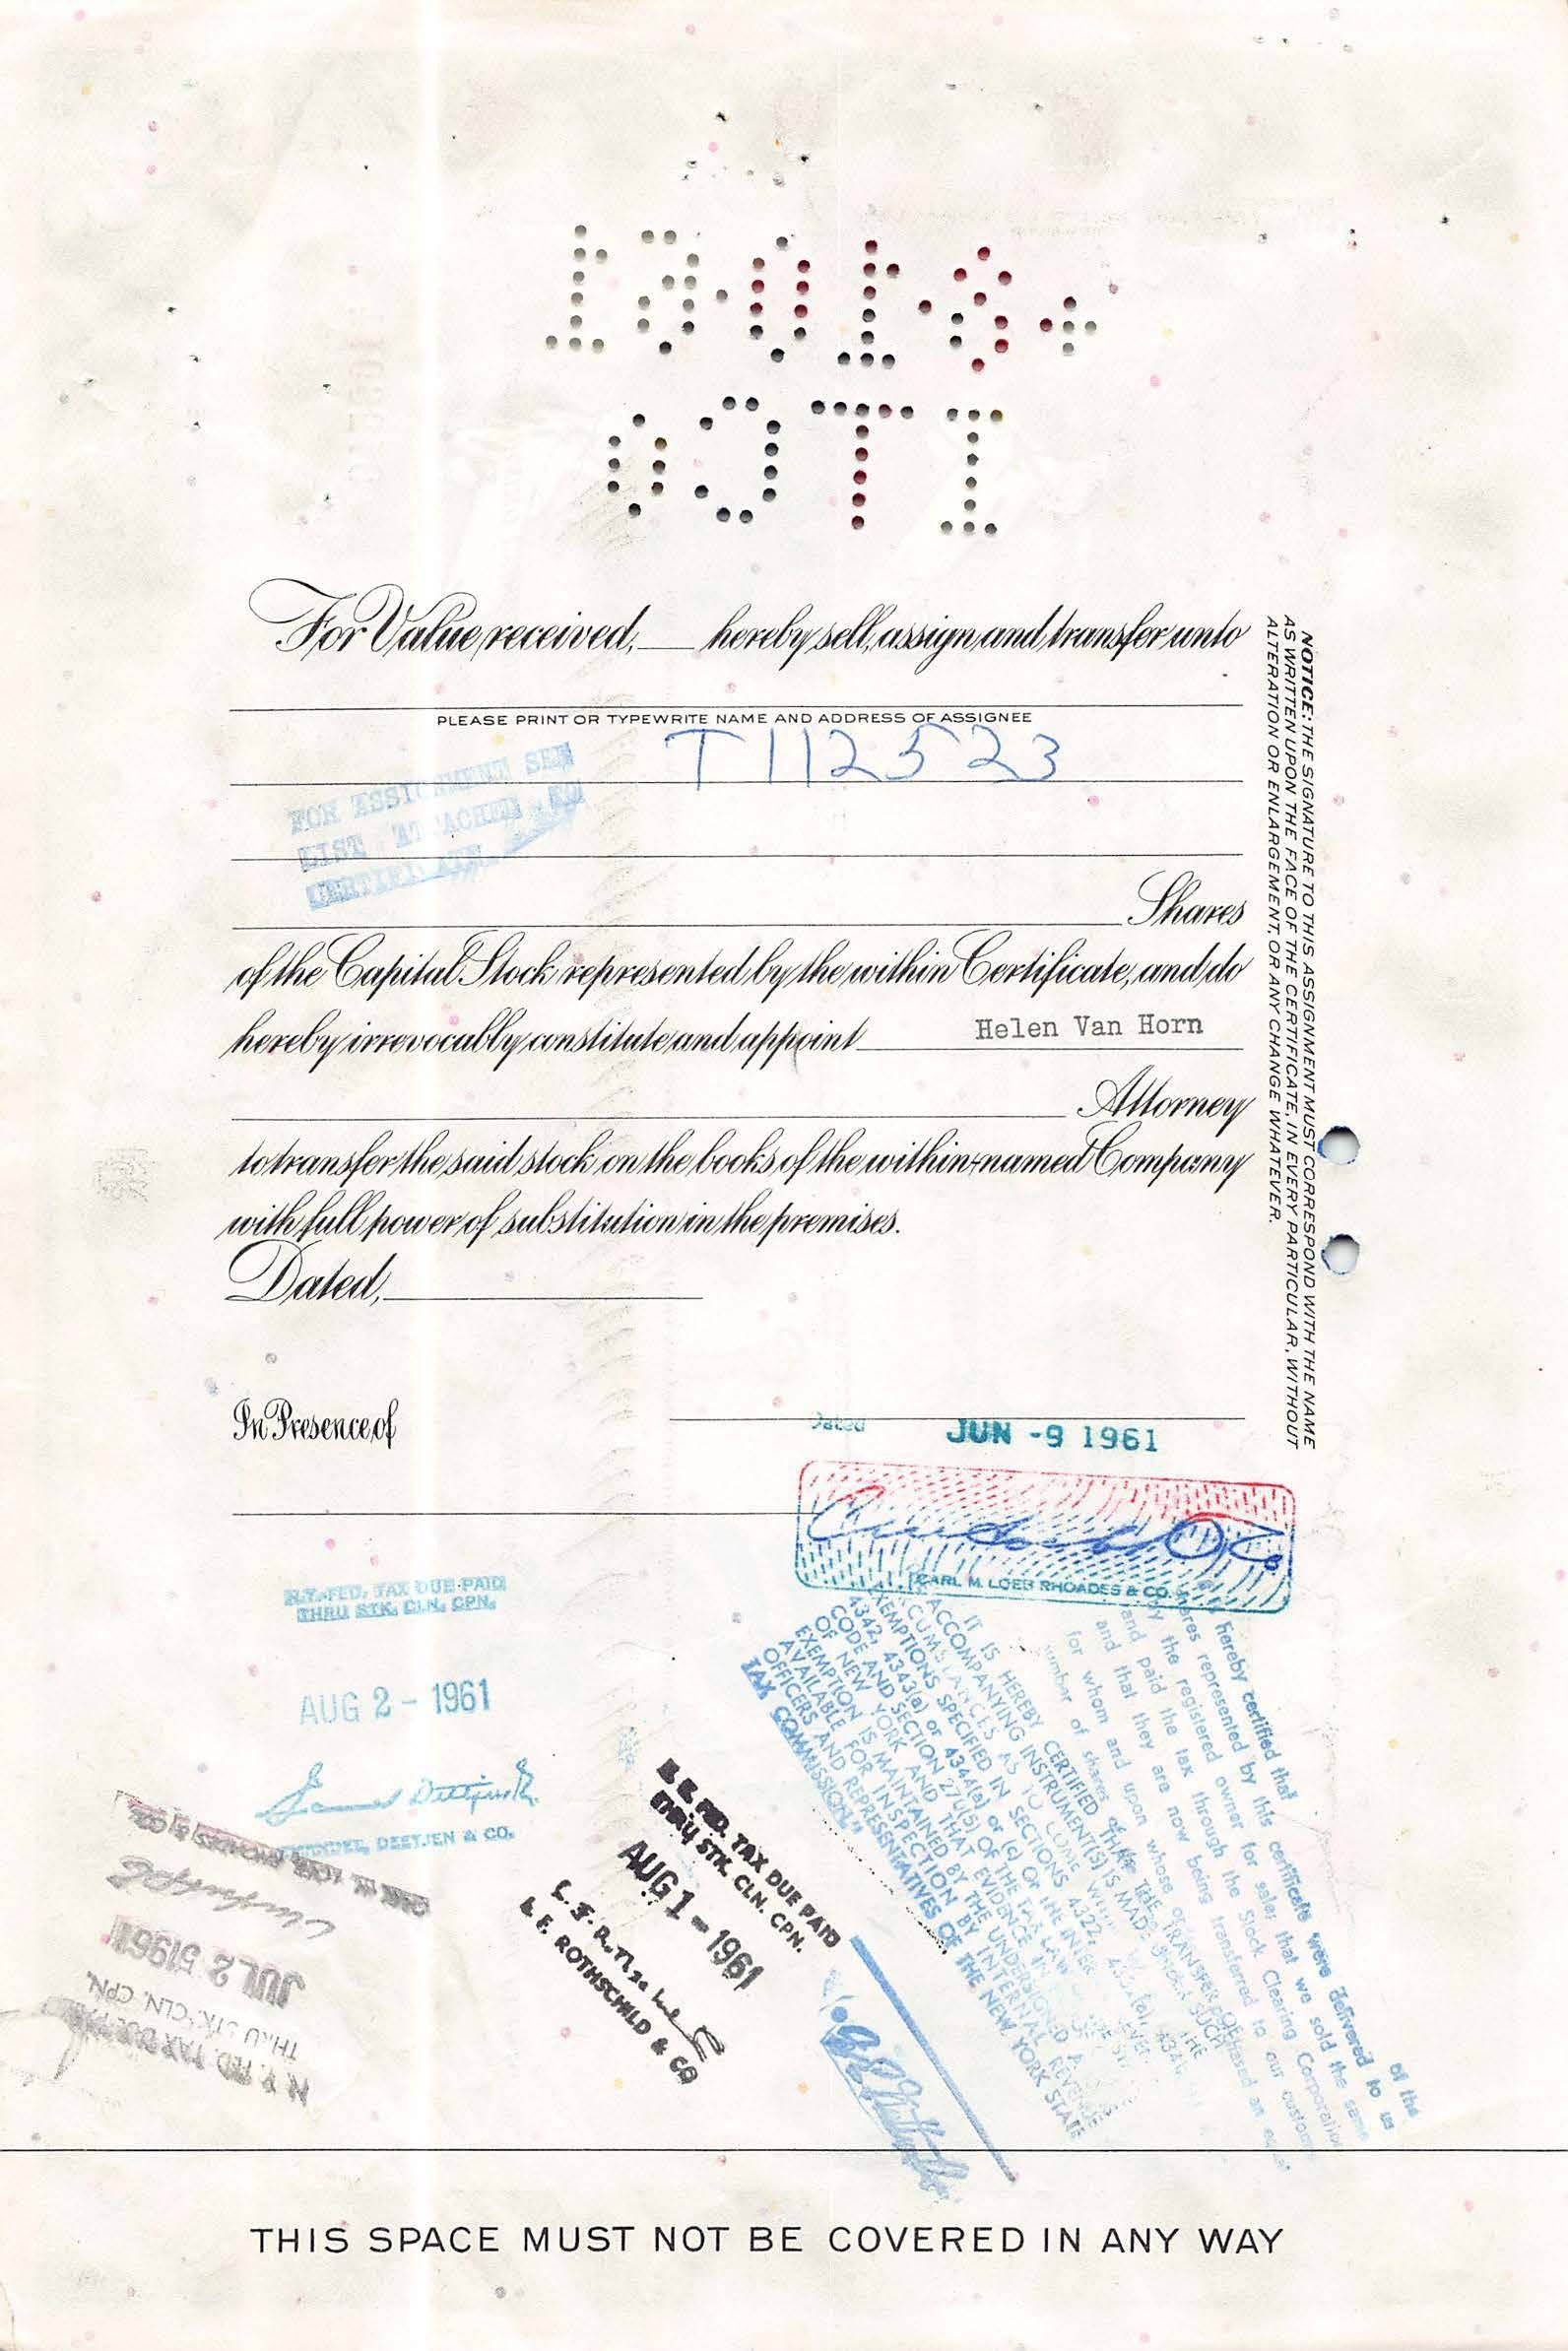 For Value received, ___ hereby sell, assign and transfer unto
PLEASE PRINT OR TYPEWRITE NAME AND ADDRESS OF ASSIGNEE
T112523
FOR ASSIGNMENT SEE
LIST ATTACHED TO
CERTIFICATE
Shares
of the Capital Stock represented by the within Certificate, and do
hereby irrevocably constitute and appoint Helen Van Horn
Attorney
to transfer the said stock on the books of the within-named Company
with full power of substitution in the premises.
Dated,
In Presence of
NOTICE: THE SIGNATURE TO THIS ASSIGNMENT MUST CORRESPOND WITH THE NAME
AS WRITTEN UPON THE FACE OF THE CERTIFICATE, IN EVERY PARTICULAR, WITHOUT
ALTERATION OR ENLARGEMENT, OR ANY CHANGE WHATEVER.
Dated JUN -9 1961
CARL M. LOEB RHOADES & CO.
N.Y. FED. TAX DUE PAID
THRU STK. CLN. CPN.
AUG 2 - 1961
DEETJEN & CO.
FED. TAX DUE PAID
STK. CLN. CPN.
AUG 1 - 1961
L. F. ROTHSCHILD & CO
N.Y. FED. TAX DUE PAID
THRU STK. CLN. CPN.
JUL 25 1961
CARL M. LOEB RHOADES & CO.
IT IS HEREBY CERTIFIED THAT THE TRANSFER OF THE
ACCOMPANYING INSTRUMENT(S) IS MADE UNDER SUCH
EXEMPTIONS SPECIFIED IN SECTIONS 4322,
4342, 4343(a) or 4344(a) or (c) OF THE INTER
CODE AND SECTION 270(5) OF THE TAX LAW
OF NEW YORK AND THAT EVIDENCE IN
EXEMPTION IS MAINTAINED BY THE UNDERSIGNED
AVAILABLE FOR INSPECTION BY INTERNAL REVENUE
OFFICERS AND REPRESENTATIVES OF THE NEW YORK STATE
TAX COMMISSION."
hereby certified that of the
represented by this certificate were delivered to us
by the registered owner for sale; that we sold the same
and paid the tax through the Stock Clearing Corporation
and that they are now being transferred to our customer
for whom and upon whose
number of shares of the
THIS SPACE MUST NOT BE COVERED IN ANY WAY